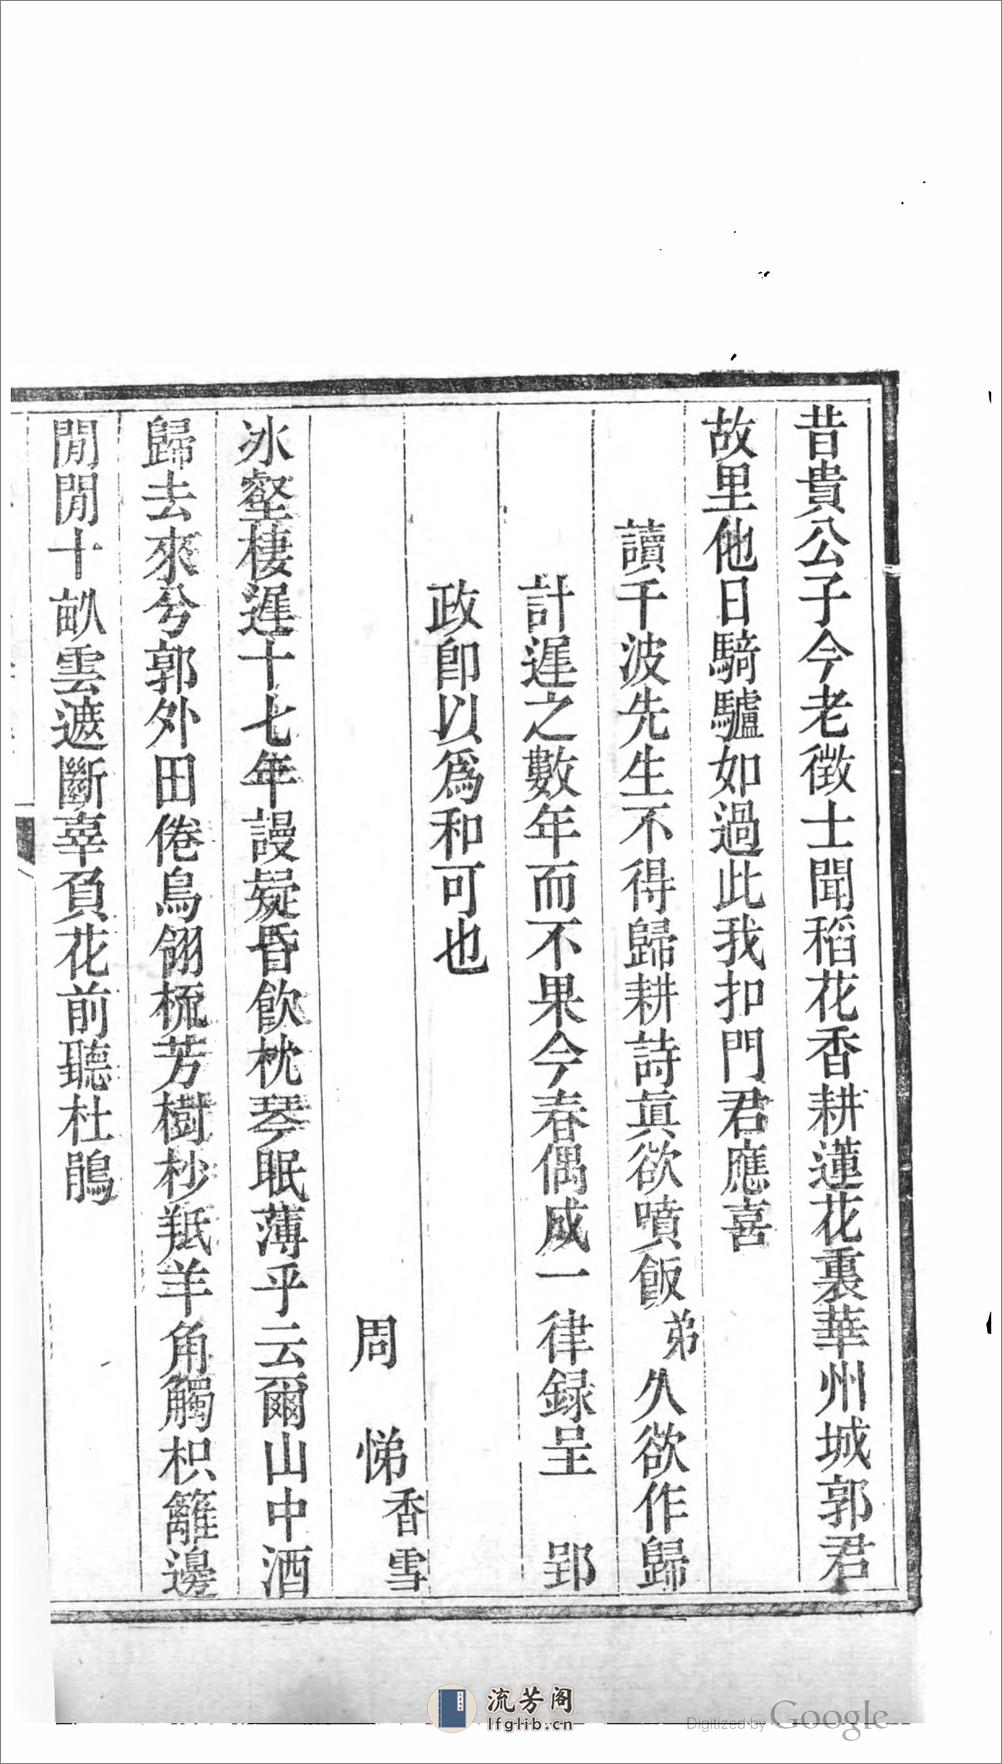 昔貴公子今老徵士聞稻花香耕蓮花裏華州城郭君
故里他日騎驢如過此我扣門君應喜
讀千波先生不得歸耕詩眞欲噴飯弟久欲作歸
計遲之數年而不果今春偶成一律録呈 郢
政卽以爲和可也
周 悌 香雪
冰壑棲遲十七年謾疑昏飮枕琴眠薄乎云爾山中酒
歸去來兮郭外田倦鳥翎梳芳樹杪羝羊角觸枳籬邊
閒閒十畝雲遮斷辜負花前聽杜鵑
流芳阁
lfglib.cn
Digitized by Google